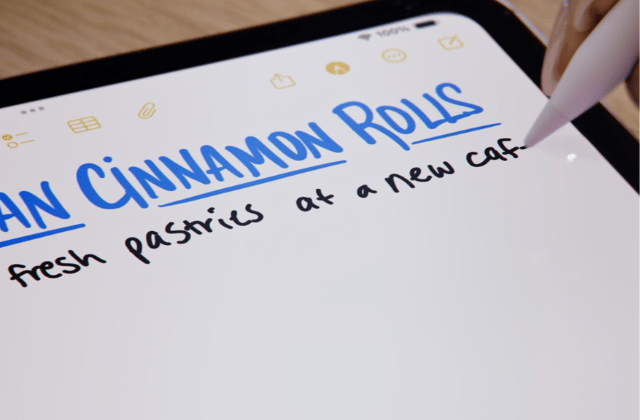 100%
AN CINNAMON ROLLS
fresh pastries at a new caf